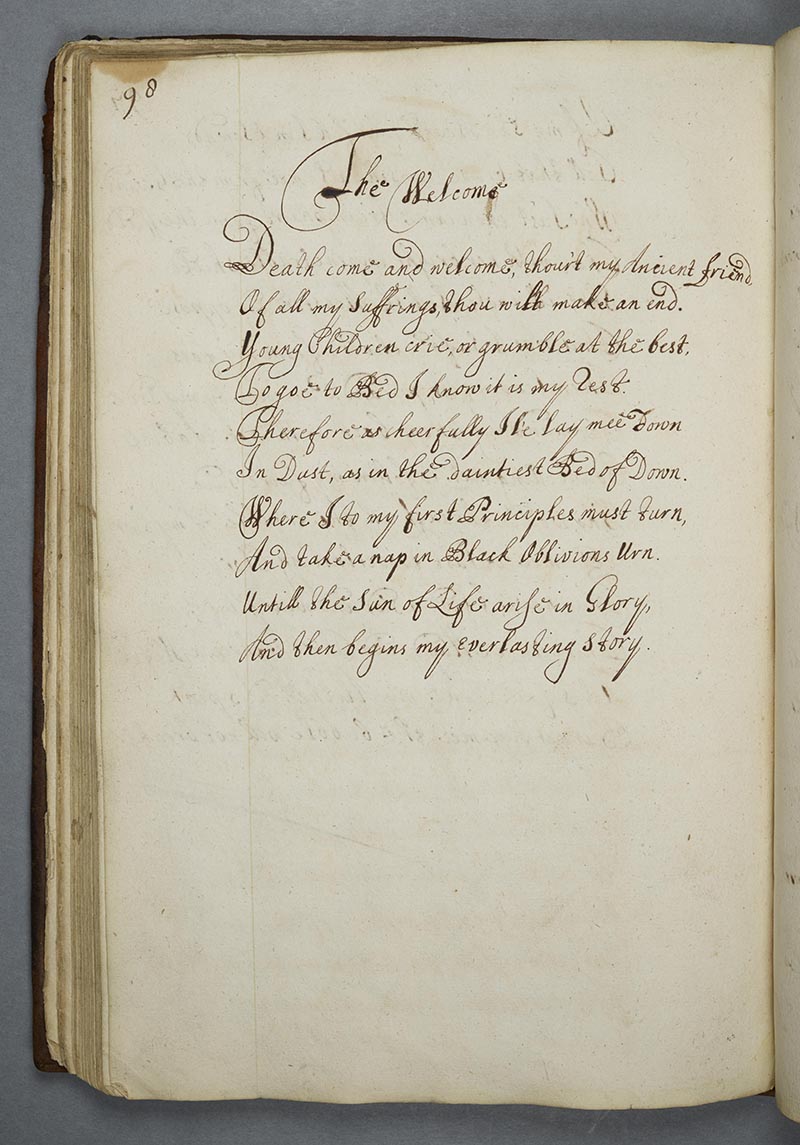 98
The Welcome
Death come and welcome, thou'rt my Ancient friend
Of all my Suffrings, thou wilt make an end.
Young Children crie, or grumble at the best,
To goe to Bed I know it is my Rest.
Therefore as cheerfully I'le lay mee Down
In Dust, as in the daintiest Bed of Down.
Where I to my first Principles must turn,
And take a nap in Black Oblivions Urn.
Untill the Sun of Life arise in Glory,
And then begins my everlasting story.